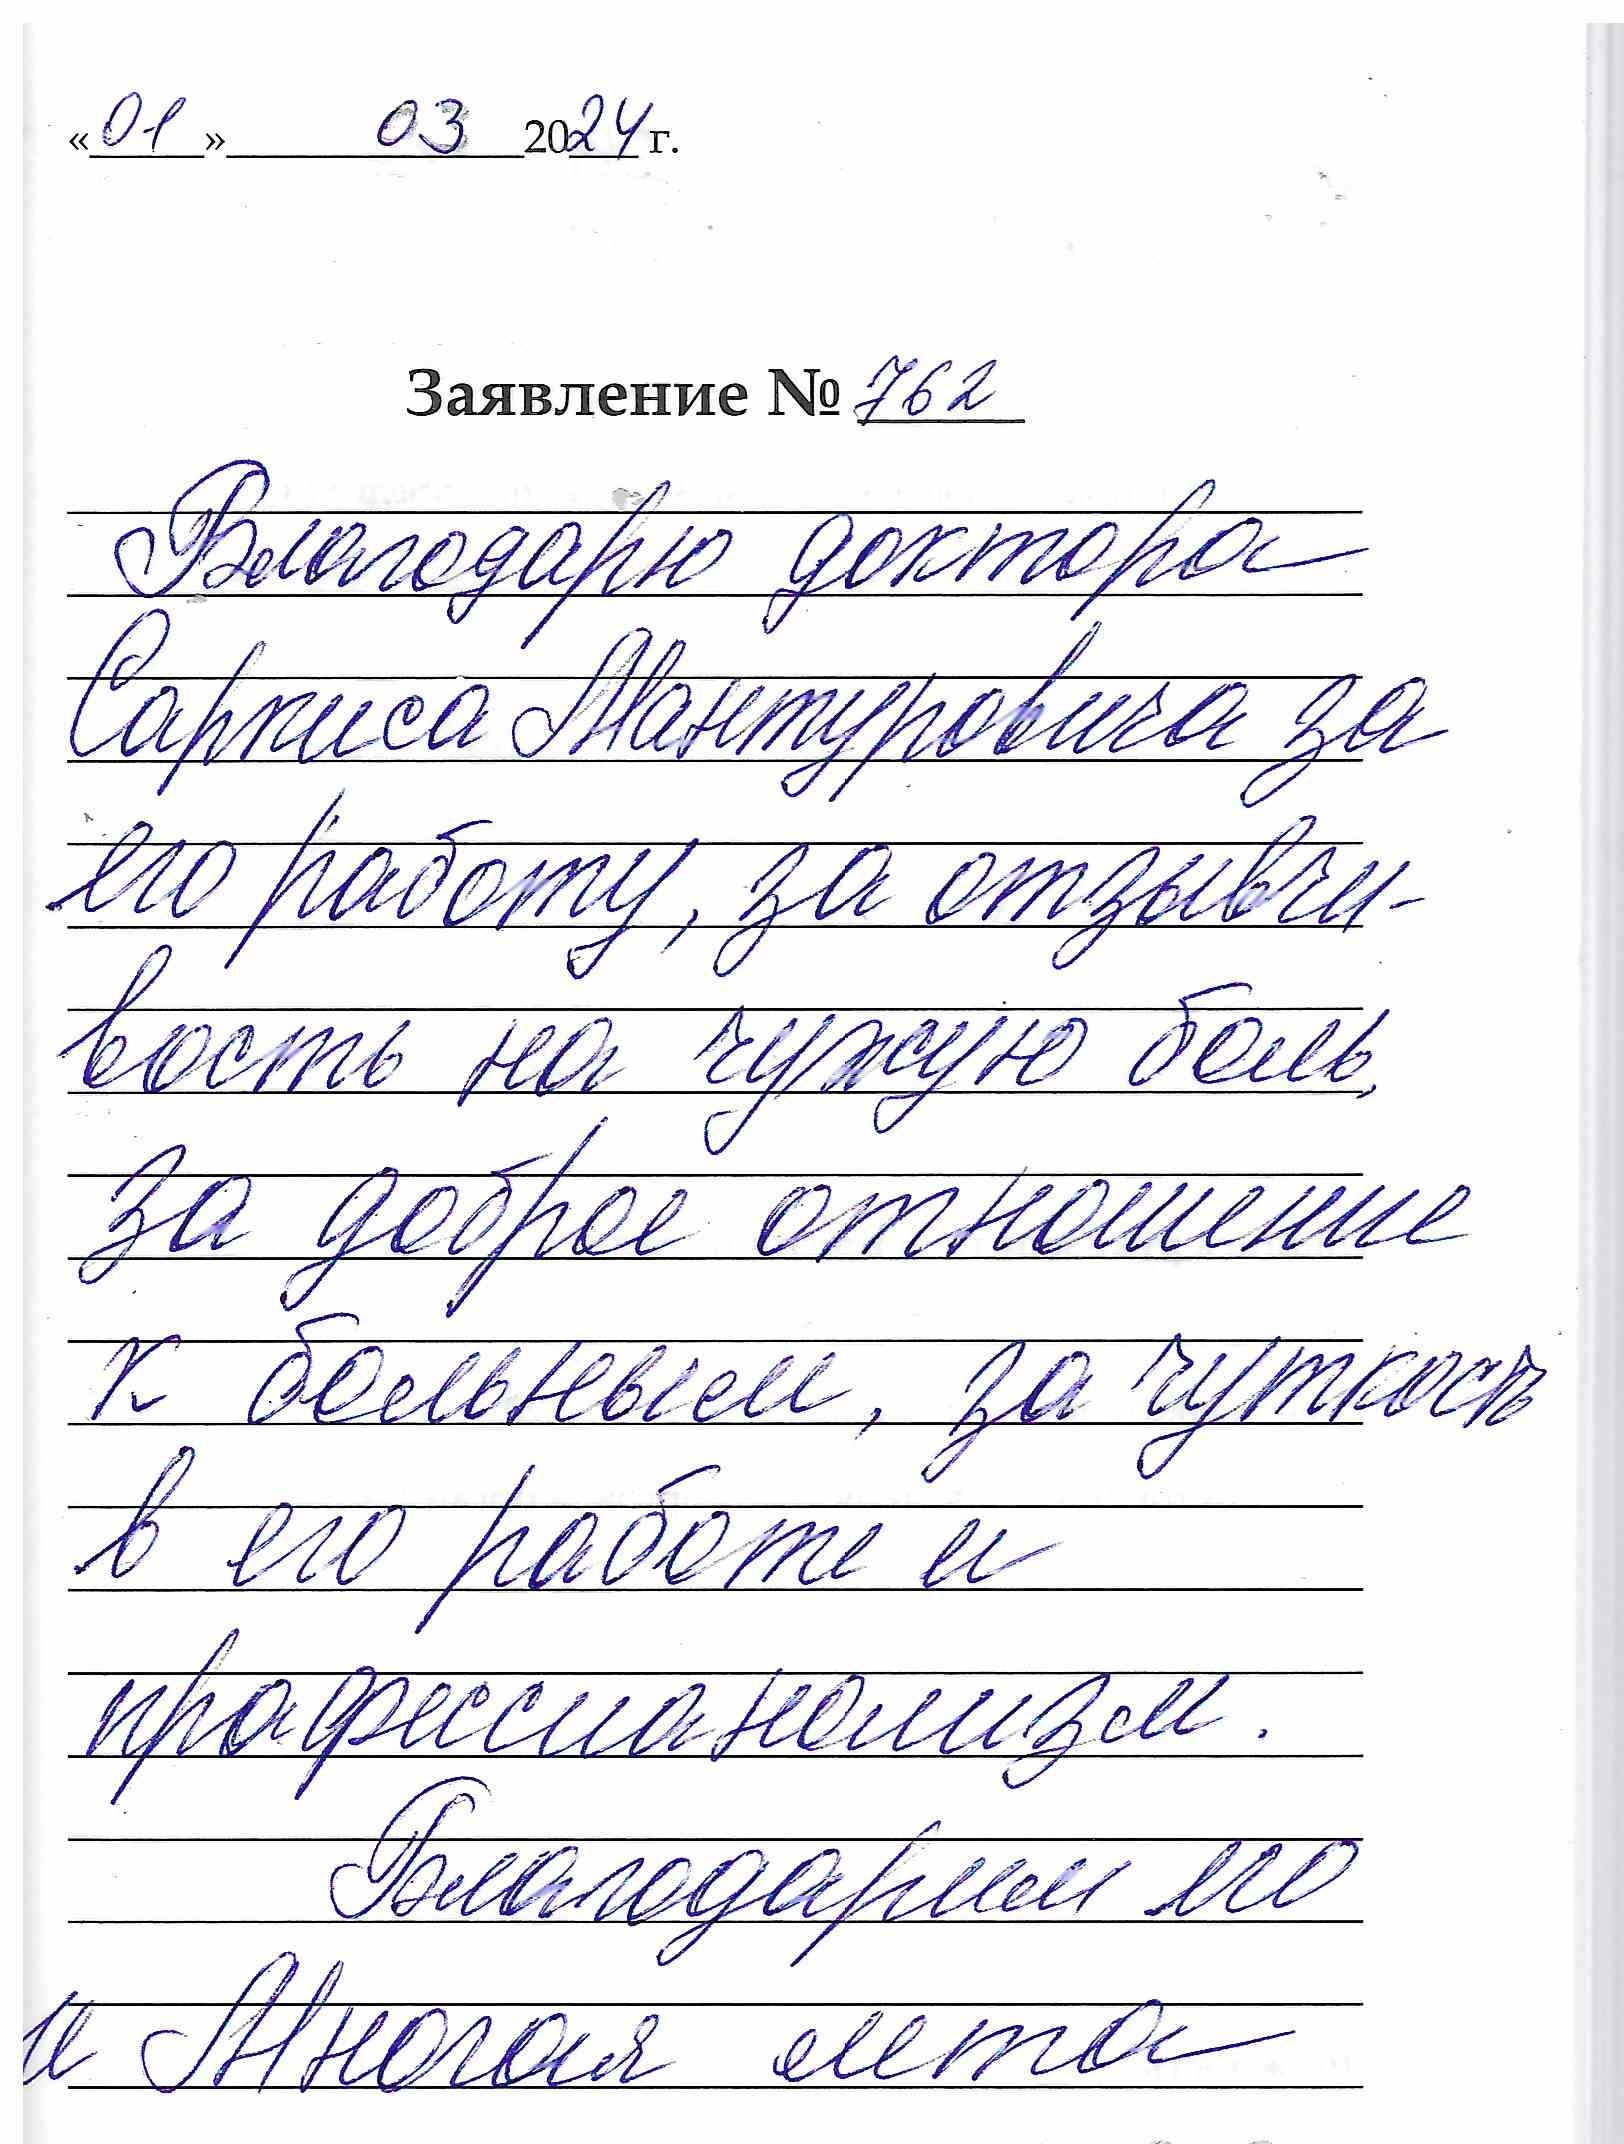 «01» 03 2024 г.
Заявление № 762
Благодарю доктора
Саркиса Мантуровича за
его работу, за отзывчи-
вость на чужую боль,
за доброе отношение
к больным, за чуткость
в его работе и
професcианолизм.
Благодарим его
и Многая лета